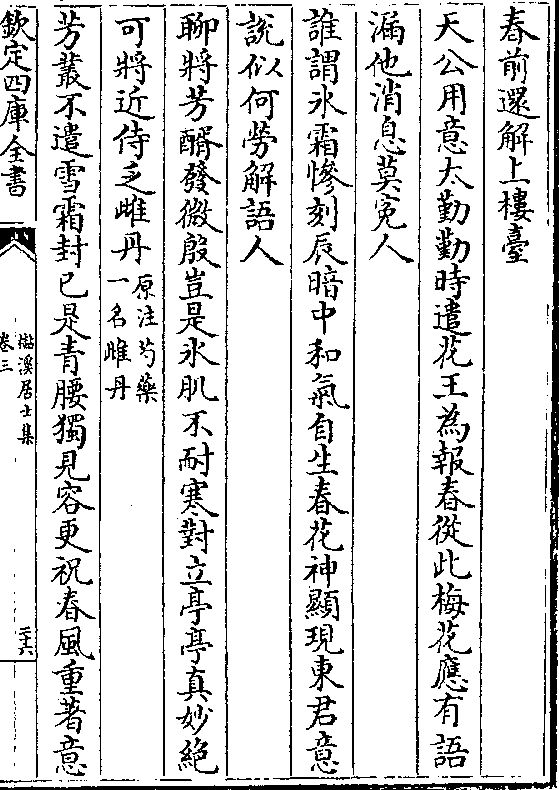 春前還解上樓臺
天公用意太勤勤時遣花王為報春從此梅花應有語
漏他消息莫寃人
誰謂氷霜慘刻辰暗中和氣自生春花神顯現東君意
說似何勞解語人
聊將芳醑發微殷豈是氷肌不耐寒對立亭亭真妙絶
可將近侍乏雌丹原注芍藥一名雌丹
芳叢不遣雪霜封已是青腰獨見容更祝春風重著意
欽定四庫全書
卷三
浮溪居士集
二十六